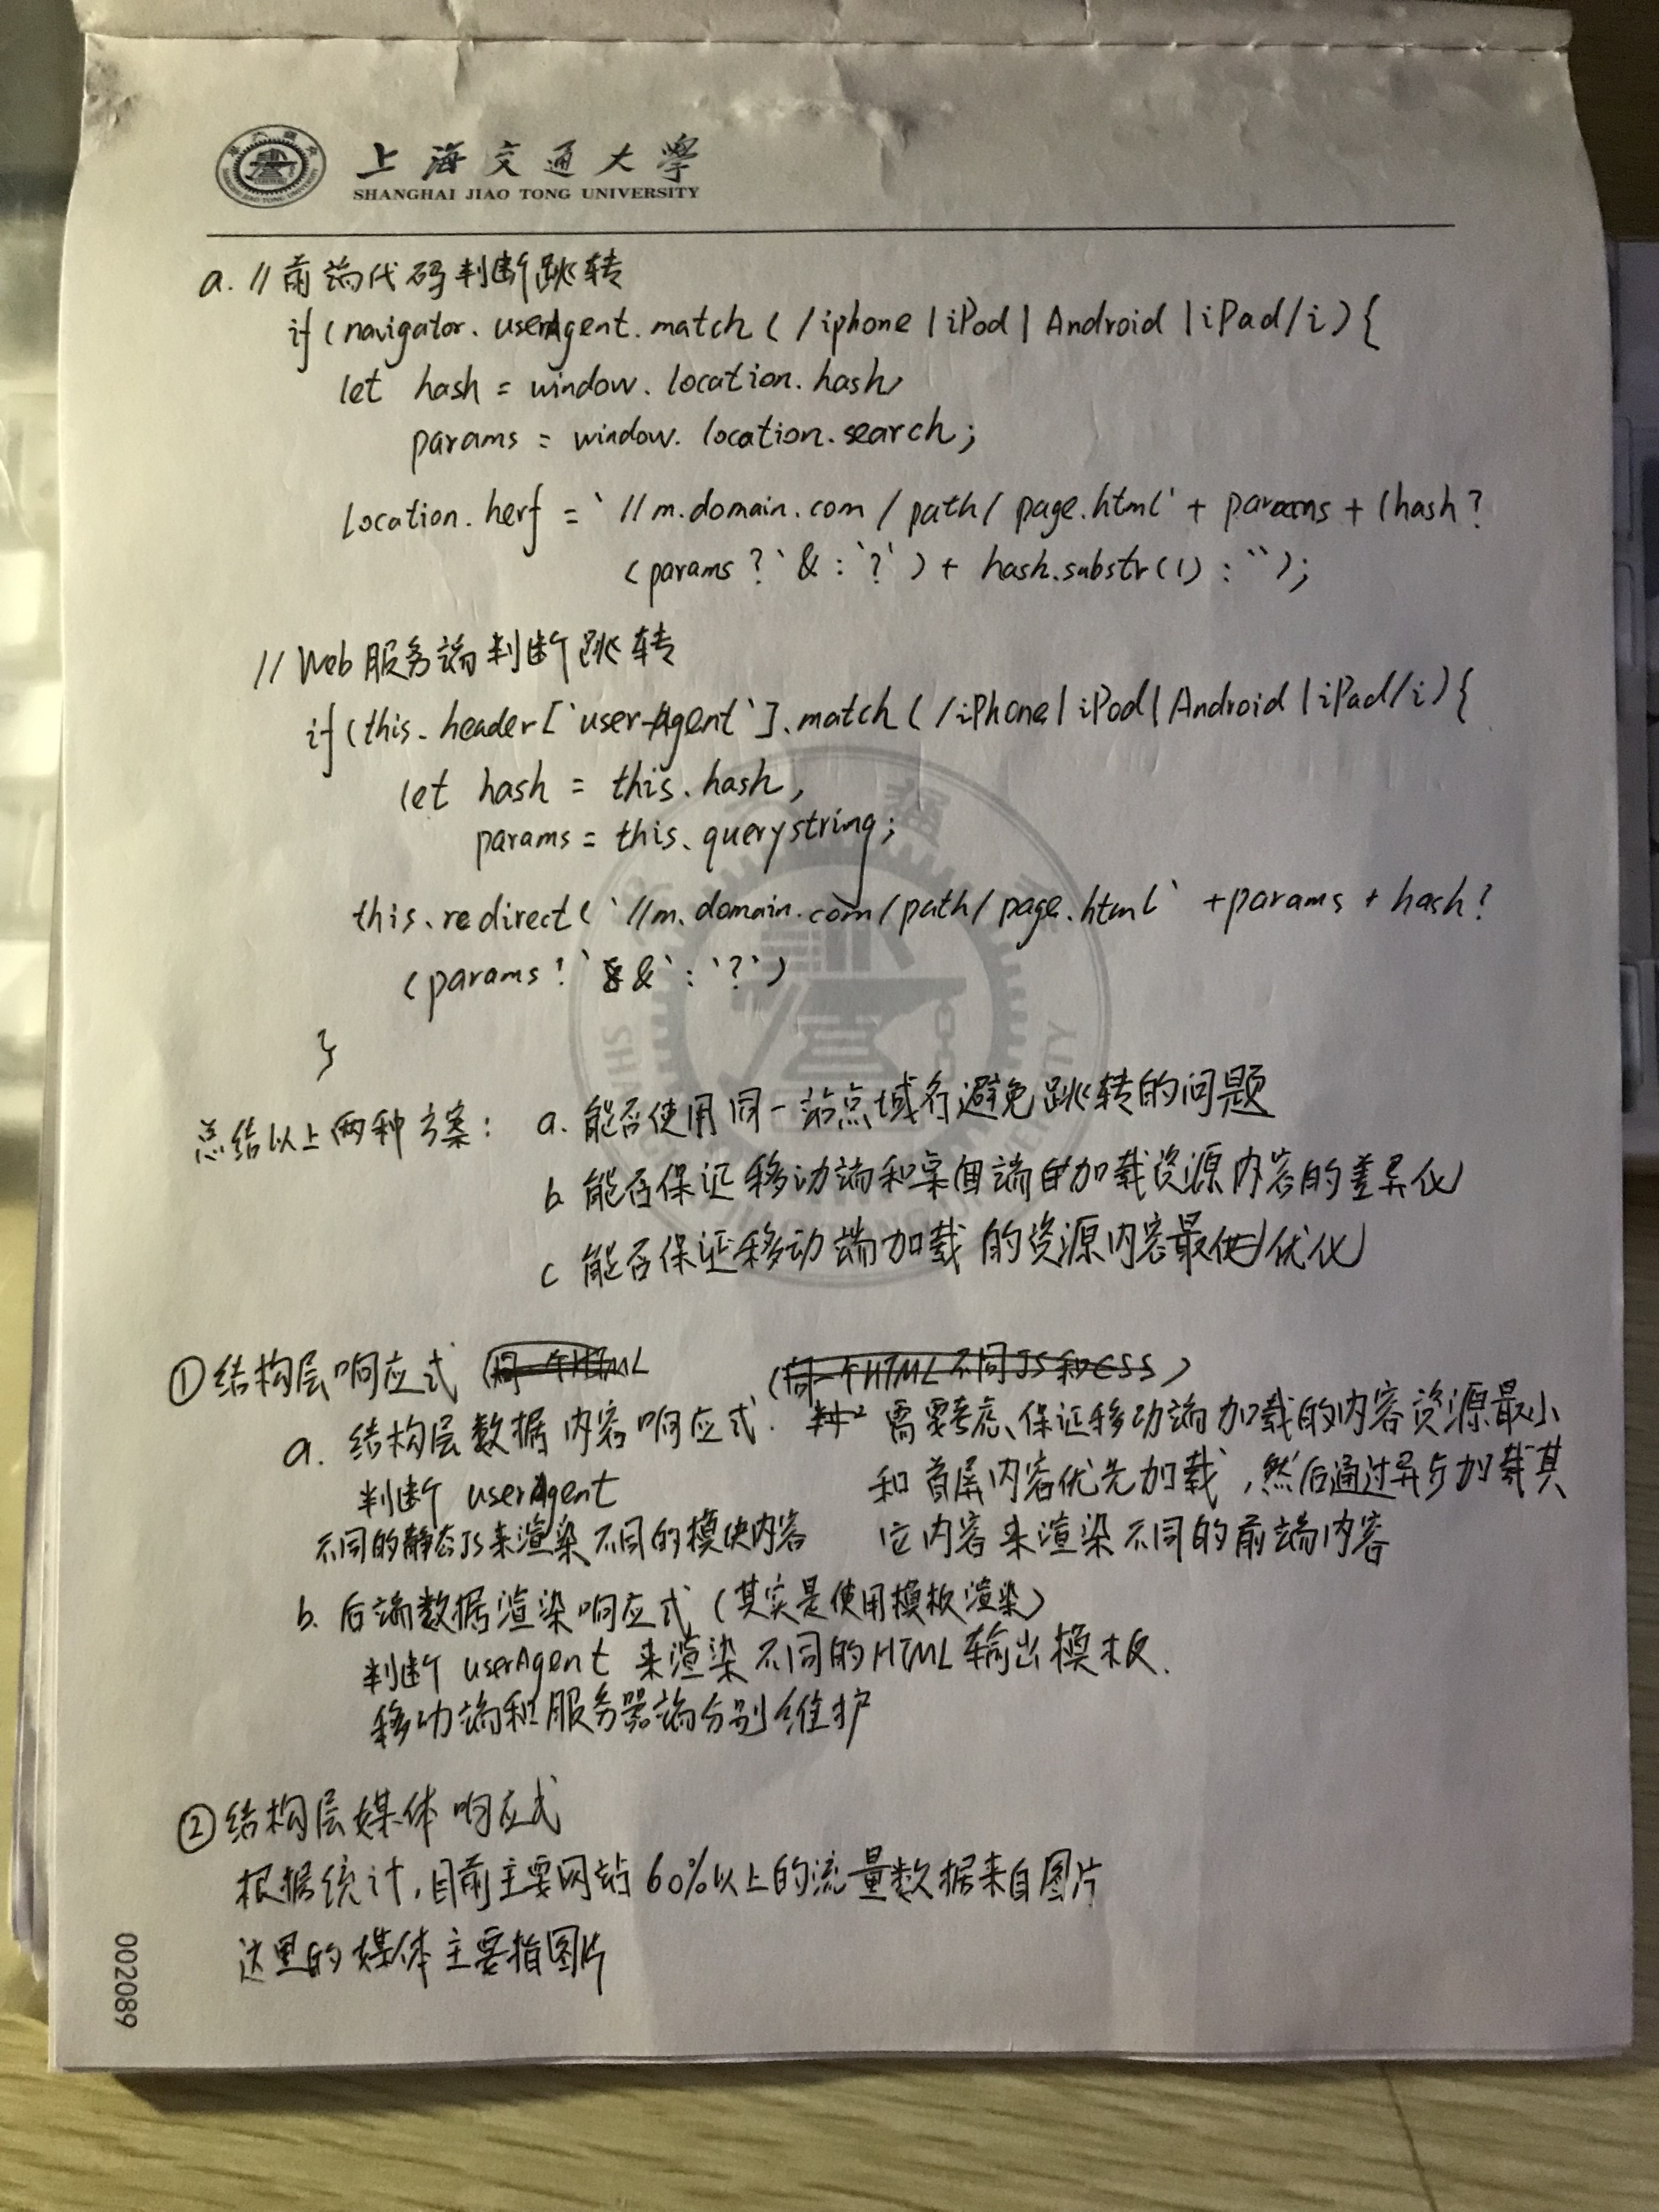 上海交通大學
SHANGHAI JIAO TONG UNIVERSITY
a. // 前端代码判断跳转
if (navigator.userAgent.match(/iphone|iPod|Android|iPad/i){
let hash = window.location.hash,
params = window.location.search;
location.herf = `//m.domain.com/path/page.html` + params + (hash?
(params?`&:`?`)+ hash.substr(1) : ``);
// Web服务端判断跳转
if (this.header[`user-Agent`].match(/iPhone|iPod|Android|iPad/i){
let hash = this.hash,
params = this.querystring;
this.redirect(`//m.domain.com/path/page.html` +params + hash?
(params?`&`:`?`)
}
总结以上两种方案: a. 能否使用同一站点域名避免跳转的问题
b 能否保证移动端和桌面端的加载资源内容的差异化
c 能否保证移动端加载的资源内容最优化
①结构层响应式
a. 结构层数据内容响应式. 需要考虑、保证移动端加载的内容资源最小
判断 userAgent 和首屏内容优先加载,然后通过异步加载其
不同的静态JS来渲染不同的模块内容 它内容来渲染不同的前端内容
b. 后端数据渲染响应式(其实是使用模板渲染)
判断 userAgent 来渲染不同的HTML输出模板.
移动端和服务器端分别维护
②结构层媒体响应式
根据统计,目前主要网站60%以上的流量数据来自图片
这里的媒体主要指图片
002089